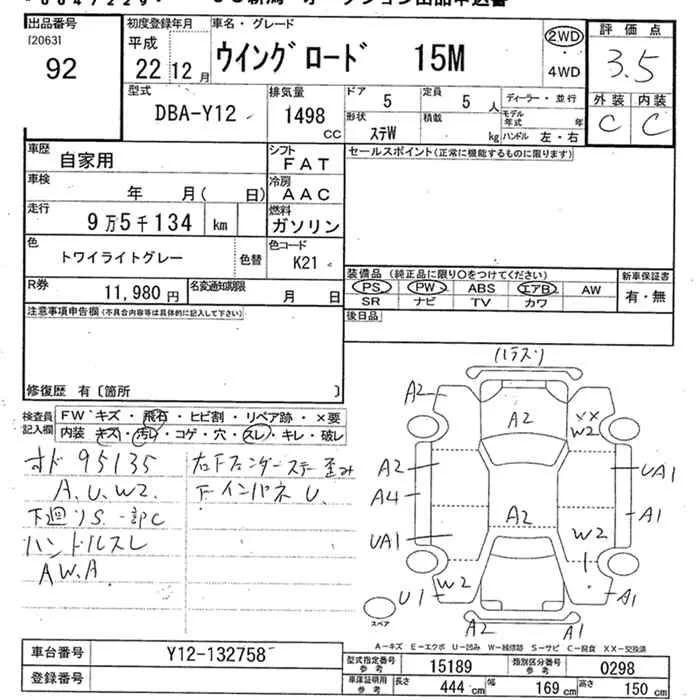 出品番号 初度登録年月 車名・グレード 評価点
[2063] 平成 ウイングロード 15M 2WD 3.5
92 22 12月 ・4WD
型式 排気量 ドア 定員 ディーラー・並行 外装 内装
DBA-Y12 1498 CC 5 5 人 モデル年式 年 C C
形状 積載
ステW kg ハンドル 左・右
車歴 シフト セールスポイント(正常に機能するものに限ります)
自家用 FAT
車検 冷房
年 月( 日) AAC
走行 燃料
9万5千134 km ガソリン
色 色替 色コード
トワイライトグレー K21
装備品(純正品に限り○をつけてください) 新車保証書
R券 名変通知期限 PS・PW・ABS・エアB・AW
11,980円 月 日 SR ナビ TV カワ 有・無
注意事項申告欄(不具合内容等は具体的に記入して下さい) 後日品
修復歴 有〔箇所 〕
検査員記入欄 FW キズ・飛石・ヒビ割・リペア跡・×要
内装 キズ・汚レ・コゲ・穴・スレ・キレ・破レ
オド 95135 右下フェンダーステー歪み
A.U.W2. Fインパネ U.
下廻りS 一部C
ハンドルスレ
AW.A
(ハラスリ)
A2
A2
XX
W2
A2
UA1
A4
A1
A2
UA1
W2
W2
U1
A1
スペア
A2
A1
A-キズ E-エクボ U-凹み W-補修跡 S-サビ C-腐食 XX-交換済
車台番号 Y12-132758
型式指定番号 参考 15189 類別区分番号 参考 0298
登録番号 車庫証明用 参考 長さ 444 cm 幅 169 cm 高さ 150 cm